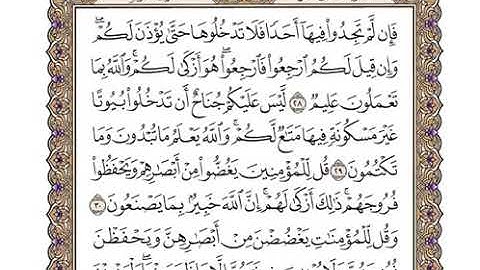 فَإِن لَّمْ تَجِدُوا۟ فِيهَآ أَحَدًا فَلَا تَدْخُلُوهَا حَتَّىٰ يُؤْذَنَ لَكُمْ ۖ
وَإِن قِيلَ لَكُمُ ٱرْجِعُوا۟ فَٱرْجِعُوا۟ ۖ هُوَ أَزْكَىٰ لَكُمْ ۚ وَٱللَّهُ بِمَا
تَعْمَلُونَ عَلِيمٌ ۝٢٨ لَّيْسَ عَلَيْكُمْ جُنَاحٌ أَن تَدْخُلُوا۟ بُيُوتًا
غَيْرَ مَسْكُونَةٍ فِيهَا مَتَـٰعٌ لَّكُمْ ۚ وَٱللَّهُ يَعْلَمُ مَا تُبْدُونَ وَمَا
تَكْتُمُونَ ۝٢٩ قُل لِّلْمُؤْمِنِينَ يَغُضُّوا۟ مِنْ أَبْصَـٰرِهِمْ وَيَحْفَظُوا۟
فُرُوجَهُمْ ۚ ذَٰلِكَ أَزْكَىٰ لَهُمْ ۗ إِنَّ ٱللَّهَ خَبِيرٌۢ بِمَا يَصْنَعُونَ ۝٣٠
وَقُل لِّلْمُؤْمِنَـٰتِ يَغْضُضْنَ مِنْ أَبْصَـٰرِهِنَّ وَيَحْفَظْنَ